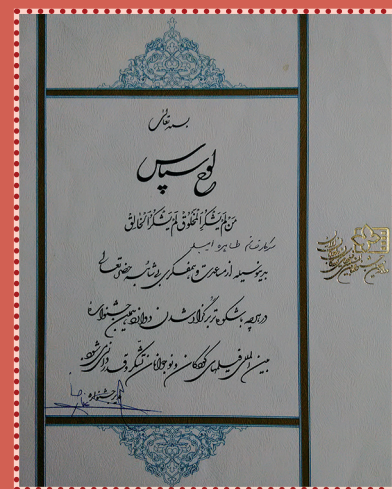 بسمه تعالی
لوح سپاس
مَن لَم یَشکُرِ المَخلوق لَم یَشکُرِ الخالِق
سرکار خانم طاهره
بدینوسیله از مساعدی و همفکری شائبه حضرتعالی
در هرچه باشکوه تر برگزار شدن دوازدهمین جشنواره
بین المللی فیلمهای کودکان و نوجوانان تشکر و قدردانی می شود.
دبیر جشنواره